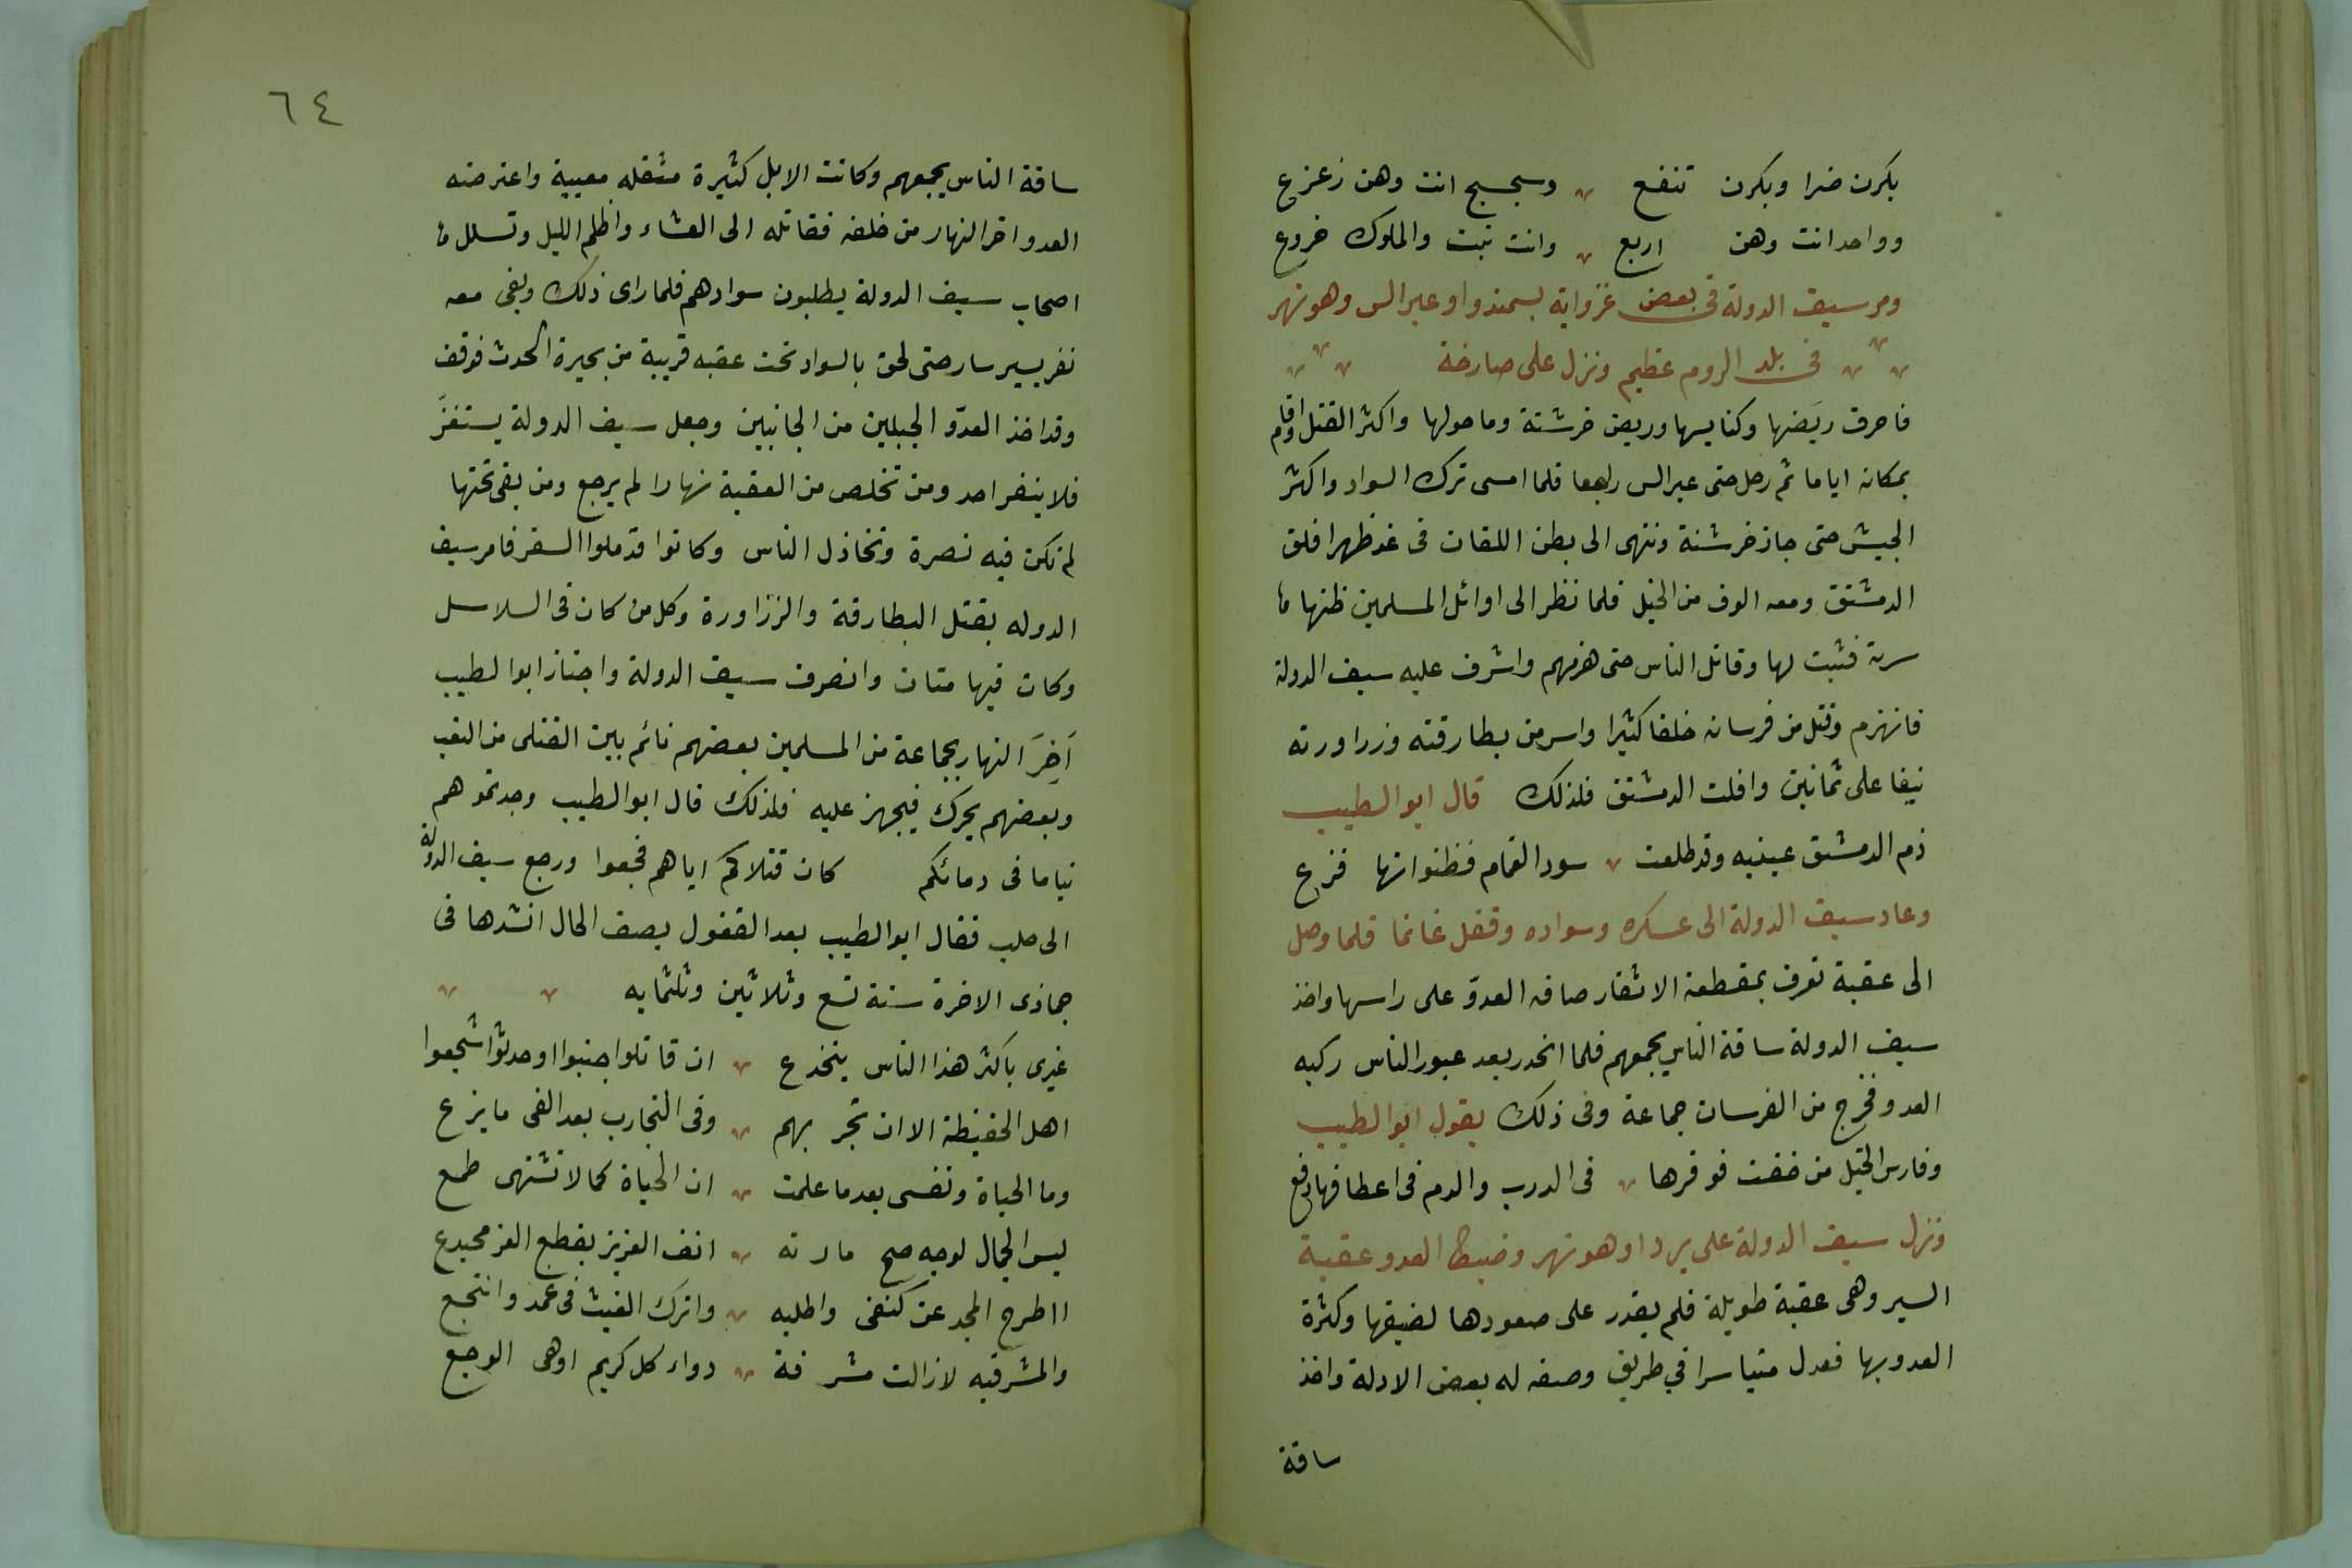 بكرن ضرا وبكرن تنفع وسجسج انت وهن زعزع
وواحد انت وهن اربع وانت نبت والملوك خروع
ومر سيف الدولة فى بعض غزواته بسمندوا وعبر الس وهو نهر
فى بلد الروم عظيم ونزل على صارخة
فاحرق ربَضها وكنايسها وربض خرشنة وما حولها واكثر القتل واقام
بمكانه اياما ثم رحل حتى عبر الس راجعا فلما امسى ترك السواد واكثر
الجيش حتى جاز خرشنة وننتهى الى بطن اللقان فى غد ظهرا فلق
الدمشتق ومعه الوف من الخيل فلما نظر الى اوائل المسلمين ظنها
سرية فثبت لها وقاتل الناس حتى هزمهم واشرف عليه سيف الدولة
فانهزم وقتل من فرسانه خلقا كثيرا واسر من بطارقته وزراورته
نيفا على ثمانين وافلت الدمشتق فلذلك قال ابو الطيب
ذم الدمشق عينيه وقد طلعت سود الغمام فظنوا انها فزع
وعاد سيف الدولة الى عسكره وسواده وقفل غانما فلما وصل
الى عقبة تعرف بمقطعة الاثفار صافه العدوّ على راسها واخذ
سيف الدولة ساقة الناس يحمعهم فلما انحدر بعد عبور الناس ركبه
العدو فخرج من الفرسان جماعة وفى ذلك يقول ابو الطيب
وفارس الخيل من خفت فوقرها فى الدرب والدم فى اعطافها دفع
ونزل سيف الدولة على بردا وهو نهر وضبط العدو عقبة
السير وهى عقبة طويلة فلم يقدر على صعودها لضيقها وكثرة
العدو بها فعدل متياسرا في طريق وصفه له بعض الادلة واخذ
ساقة
٦٤
ساقة الناس يحمعهم وكانت الابل كثيرة مثقله معيية واعترضه
العدو اخر النهار من خلفه فقاتله الى العشاء واظلم الليل وتسلل
اصحاب سيف الدولة يطلبون سوادهم فلما راى ذلك وبقى معه
نفر يسير سار حتى لحق بالسواد تحت عقبه قريبة من بحيرة الحدث فوقف
وقد اخذ العدوّ الجبلين من الجانبين وجعل سيف الدولة يستنفرَ
فلا ينفر احد ومن تخلص من العقبة نهارا لم يرجع ومن بقى تحتها
لم تكن فيه نصرة وتخاذل الناس وكانوا قد ملوا السفر فامر سيف
الدوله بقتل البطارقة والزراورة وكل من كان فى السلاسل
وكان فيها مئات وانصرف سيف الدولة واجتاز ابو الطيب
آخِرَ النهار بجماعة من المسلمين بعضهم نائم بين القتلى من التعب
وبعضهم يحرك فيجهز عليه فلذلك قال ابو الطيب وجدتموهم
نياما فى دمائكم كان قتلاكم اياهم فجعوا ورجع سيف الدولة
الى حلب فقال ابو الطيب بعد القفول يصف الحال انشدها فى
جماذى الاخرة سنة تسع وثلاثين وثلثمايه
غيرى باكثر هذا الناس ينخدع ان قاتلوا جبنوا او حدثوا شجعوا
اهل الحفيظة الا ان تجر بهم وفى التجارب بعد الغى ما يزع
وما الحياة ونفسى بعد ما علمت ان الحياة كما لا تشتهى طمع
ليس الجمال لوجه صح مارنه انف العزيز بقطع العز محيدع
ااطرح المجد عن كتفى واطلبه واترك الغيث فى غمد وانتجع
والمشرفيه لازالت مشرفة دواء كل كريم اوهى الوجع